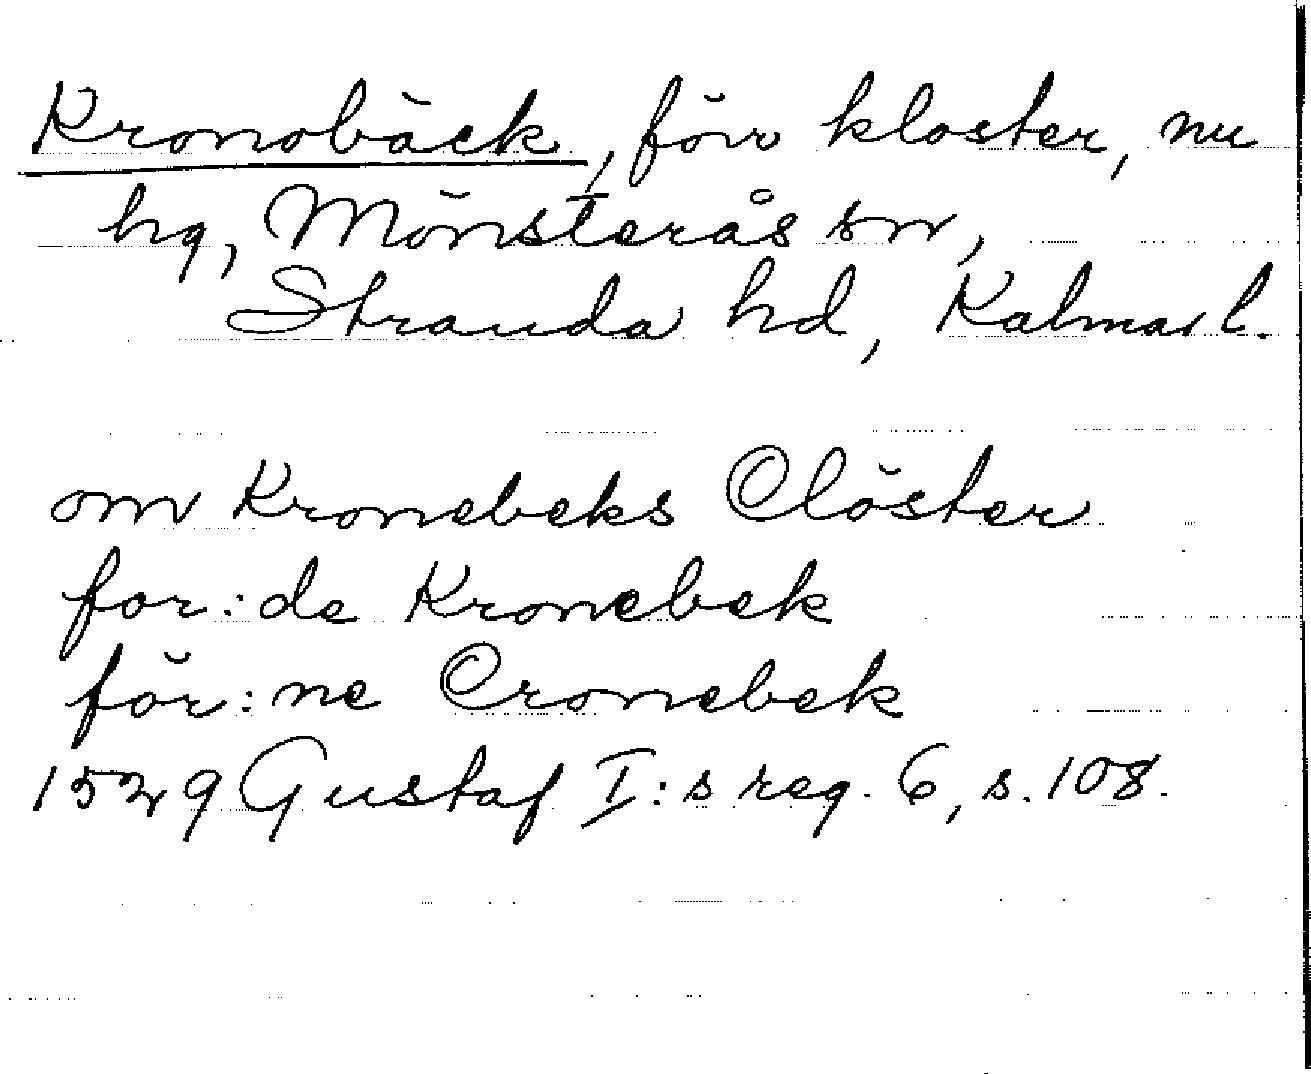 Kronobäck, förr kloster, nu
hg, Mönsterås sn,
Stranda hd, Kalmar l.
om Kronebeks Clöster
for:de Kronebek
för:ne Cronebek
1529 Gustaf I:s reg. 6, s. 108.